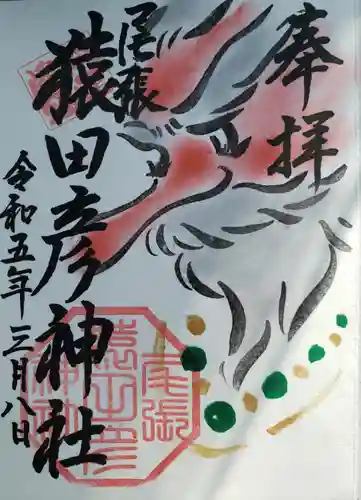 奉拝
尾張
猿田彦神社
令和五年三月八日
尾張
猿田彦
神社